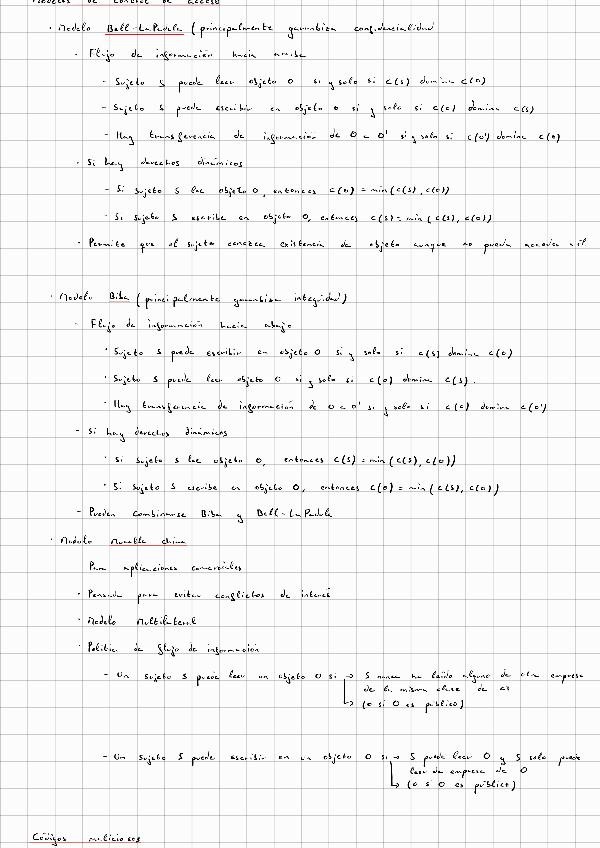 Modelos de control de acceso
· Modelo Bell-LaPadula (principalmente garantiza confidencialidad
- Flujo de información hacia arriba
- Sujeto S puede leer objeto O si y solo si c(s) domina c(o)
- Sujeto S puede escribir en objeto O si y solo si c(o) domina c(s)
- Hay transferencia de información de O a O' si y solo si c(o') domina c(o)
· Si hay derechos dinámicos
- Si sujeto S lee objeto O, entonces c(o) = min(c(s), c(o))
- Si sujeto S escribe en objeto O, entonces c(s) = min(c(s), c(o))
· Permite que el sujeto conozca existencia de objeto aunque no pueda acceder a él
· Modelo Biba (principalmente garantiza integridad)
- Flujo de información hacia abajo
· Sujeto S puede escribir en objeto O si y solo si c(s) domina c(o)
· Sujeto S puede leer objeto O si y solo si c(o) domina c(s).
· Hay transferencia de información de O a O' si y solo si c(o) domina c(o')
- Si hay derechos dinámicos
· Si sujeto S lee objeto O, entonces c(s) = min(c(s), c(o))
· Si sujeto S escribe en objeto O, entonces c(o) = min(c(s), c(o))
- Pueden combinarse Biba y Bell-LaPadula
· Modelo Muralla china
Para aplicaciones comerciales
· Pensado para evitar conflictos de interés
· Modelo Multilateral
· Política de flujo de información
- Un sujeto S puede leer un objeto O si → S nunca ha leído alguno de otra empresa
de la misma clase de
↳ (o si O es público)
- Un sujeto S puede escribir en un objeto O si → S puede leer O y S solo puede
leer de empresa de O
↳ (o si O es público)
Códigos maliciosos